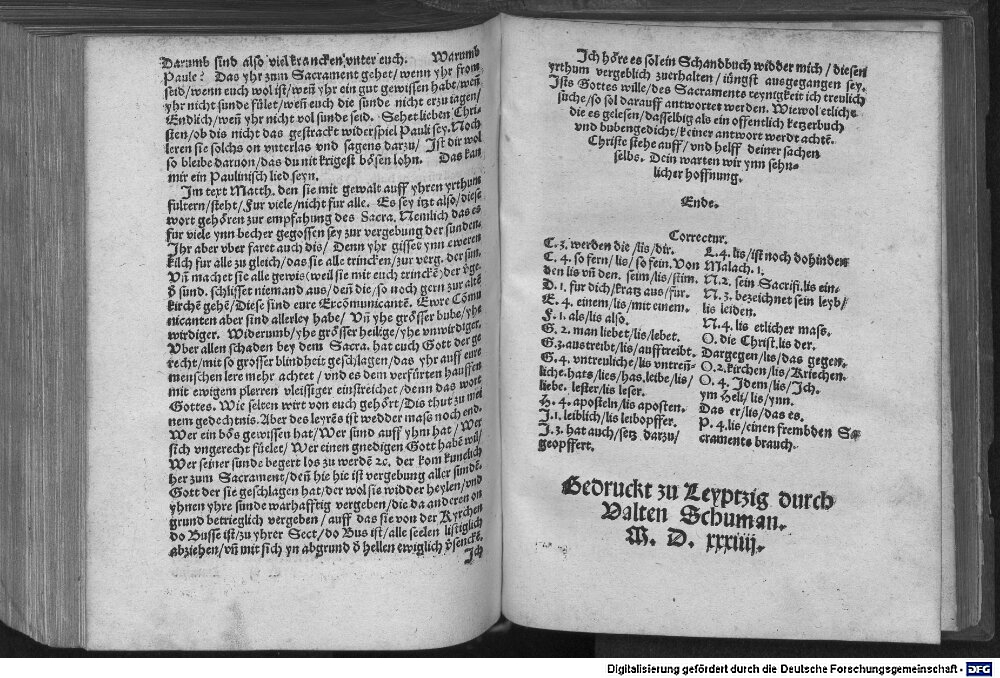 Darumb sind also viel krancken/vnter euch. Warumb
Paule? Das yhr zum Sacrament gehet/wenn yhr from
seid/wenn euch wol ist/weñ yhr ein gut gewissen habt/weñ
yhr nicht sunde fület/weñ euch die sunde nicht erzu iagen/
Endlich/weñ yhr nicht vol sunde seid. Sehet lieben Chri-
sten/ob dis nicht das gestrackt widerspiel Pauli sey. Noch
leren sie solchs on vnterlas vnd sagens darzu/ Ist dir wol
so bleibe daruon/das du nit krigest bösen lohn. Das kan
mir ein Paulinisch lied seyn.
Im text Matth. den sie mit gewalt auff yhren yrthum
fultern/steht/Fur viele/nicht fur alle. Es sey itzt also/diese
wort gehören zur empfahung des Sacra. Nemlich das es
fur viele ynn becher gegossen sey zur vergebung der sunden.
Ihr aber vber faret auch dis/ Denn yhr gisset ynn eweren
kilch fur alle zu gleich/das sie alle trincken/zur verg. der sun.
Vñ machet sie alle gewis (weil sie mit euch trinckē) der v̄ge.
d̄ sund. schlisset niemand aus/deñ die/so noch gern zur altē
kirchē gehē/Diese sind eure Ercōmunicantē. Ewre Cōmu
nicanten aber sind allerley habe/ Vñ yhe grösser bube/yhe
wirdiger. Widerumb/yhe grösser heilige/yhe vnwirdiger.
Vber allen schaden bey dem Sacra. hat euch Gott der ge
recht/mit so grosser blindheit geschlagen/das yhr auff eure
menschen lere mehr achtet/vnd es dem verfürten hauffen
mit ewigem plerren vleissiger einstreichet/denn das wort
Gottes. Wie selten wirt von euch gehört/Dis thut zu mei
nem gedechtnis. Aber des leyrēs ist wedder mass noch end.
Wer ein bös gewissen hat/Wer sund auff yhm hat/Wer
sich vngerecht füelet/Wer einen gnedigen Gott habē wil/
Wer seiner sunde begert los zu werdē ꝛc. der kom kunelich
her zum Sacrament/deñ hie hie ist vergebung aller sundē.
Gott der sie geschlagen hat/der wol sie widder heylen/vnd
yhnen yhre sunde warhafftig vergeben/die da anderen on
grund betrieglich vergeben/ auff das sie von der Kyrchen
do Busse ist/zu yhrer Sect/do Bus ist/alle seelen listiglich
abziehen/vñ mit sich yn abgrund d̄ hellen ewiglich v̄sencke.
Ich
Ich höre es sol ein Schandbuch widder mich/diesen
yrthum vergeblich zuerhalten/iüngst ausgegangen sey.
Ists Gottes wille/des Sacraments reynigkeit ich treulich
suche/so sol darauff antwortet werden. Wiewol etliche
die es gelesen/dasselbig als ein offentlich ketzerbuch
vnd bubengedicht/keiner antwort werdt achtē.
Christe stehe auff/vnd helff deiner sachen
selbs. Dein warten wir ynn sehn-
licher hoffnung.
Ende.
Correctur.
C. 3. werden die/lis/dir.
C. 4. so fern/lis/so fein. Von
den lis vñ den. seim/lis/stim.
D. 1. fur dich/kratz aus/fur.
E. 4. einem/lis/mit einem.
F. 1. als/lis also.
G. 2. man liebet/lis/lebet.
G. 3. austreibt/lis/aufftreibt.
G. 4. vntreuliche/lis vntreñ-
liche. hats/lies/has. leibe/lis/
liebe. lester/lis leser.
H. 4. aposteln/lis aposten.
J. 1. leiblich/lis leibopffer.
J. 3. hat auch/setz darzu/
geopffert.
L. 4. lis/ist noch dohinden
Malach. 1.
N. 2. sein Sacrifi. lis ein-
N. 3. bezeichnet sein leyb/
lis leiden.
N. 4. lis etlicher mass.
O. die Christ. lis der.
Dargegen/lis/das gegen.
O. 2. kirchen/lis/Kriechen.
O. 4. Idem/lis/Ich.
ym Heli/lis/ynn.
Das er/lis/das es.
P. 4. lis/einen frembden Sa-
craments brauch.
Gedruckt zu Leyptzig durch
Valten Schuman.
M. D. xxxiiij.
Digitalisierung gefördert durch die Deutsche Forschungsgemeinschaft - DFG